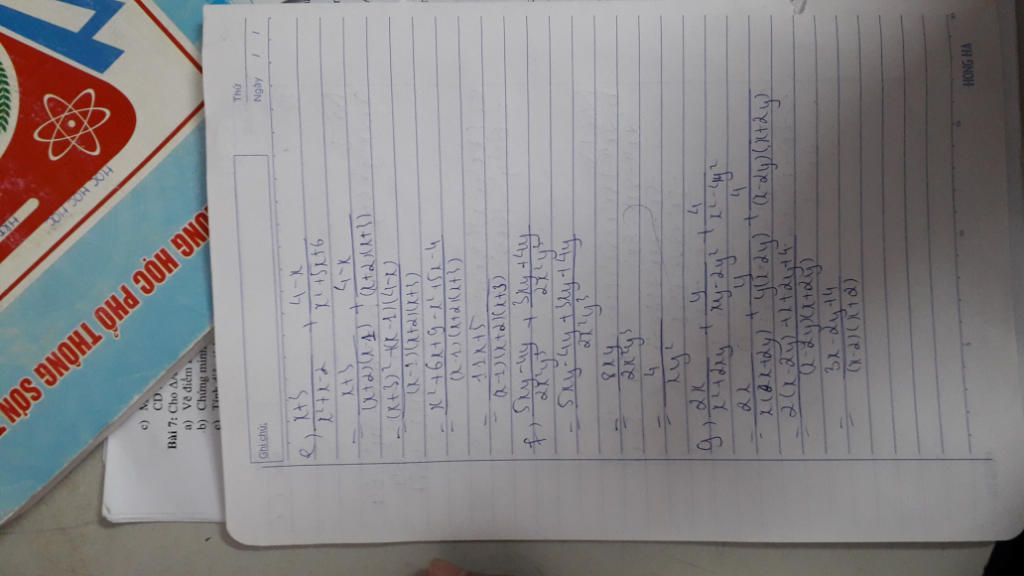 Thứ
Ngày / /
Ghi chú:
e) \frac{x+3}{x^2+x-2} + \frac{4-x}{x^2+5x+6}
= \frac{x+3}{(x+2)(x-1)} + \frac{4-x}{(x+2)(x+3)}
= \frac{(x+3)^2+(x-1)(4-x)}{(x-1)(x+2)(x+3)}
= \frac{x^2+6x+9-x^2+5x-4}{(x-1)(x+2)(x+3)}
= \frac{11x+5}{(x-1)(x+2)(x+3)}
f) \frac{5xy-4y}{2x^2y^3} + \frac{3xy+4y}{2x^2y^3}
= \frac{5xy-4y+3xy+4y}{2x^2y^3}
= \frac{8xy}{2x^2y^3}
= \frac{4}{xy^2}
g) \frac{2x}{x^2+2xy} + \frac{y}{xy-2y^2} + \frac{4}{x^2-4y^2}
= \frac{2x}{x(x+2y)} + \frac{y}{y(x-2y)} + \frac{4}{(x-2y)(x+2y)}
= \frac{2(x-2y)+x+2y+4}{(x-2y)(x+2y)}
= \frac{3x-2y+4}{(x-2)(x+2)}
HONG HA
HOC HOC HOC
ỌC PHỔ THÔNG SƠN
Bài 7: Cho
a) Vẽ điểm
b) Chứng minh
c)
CD